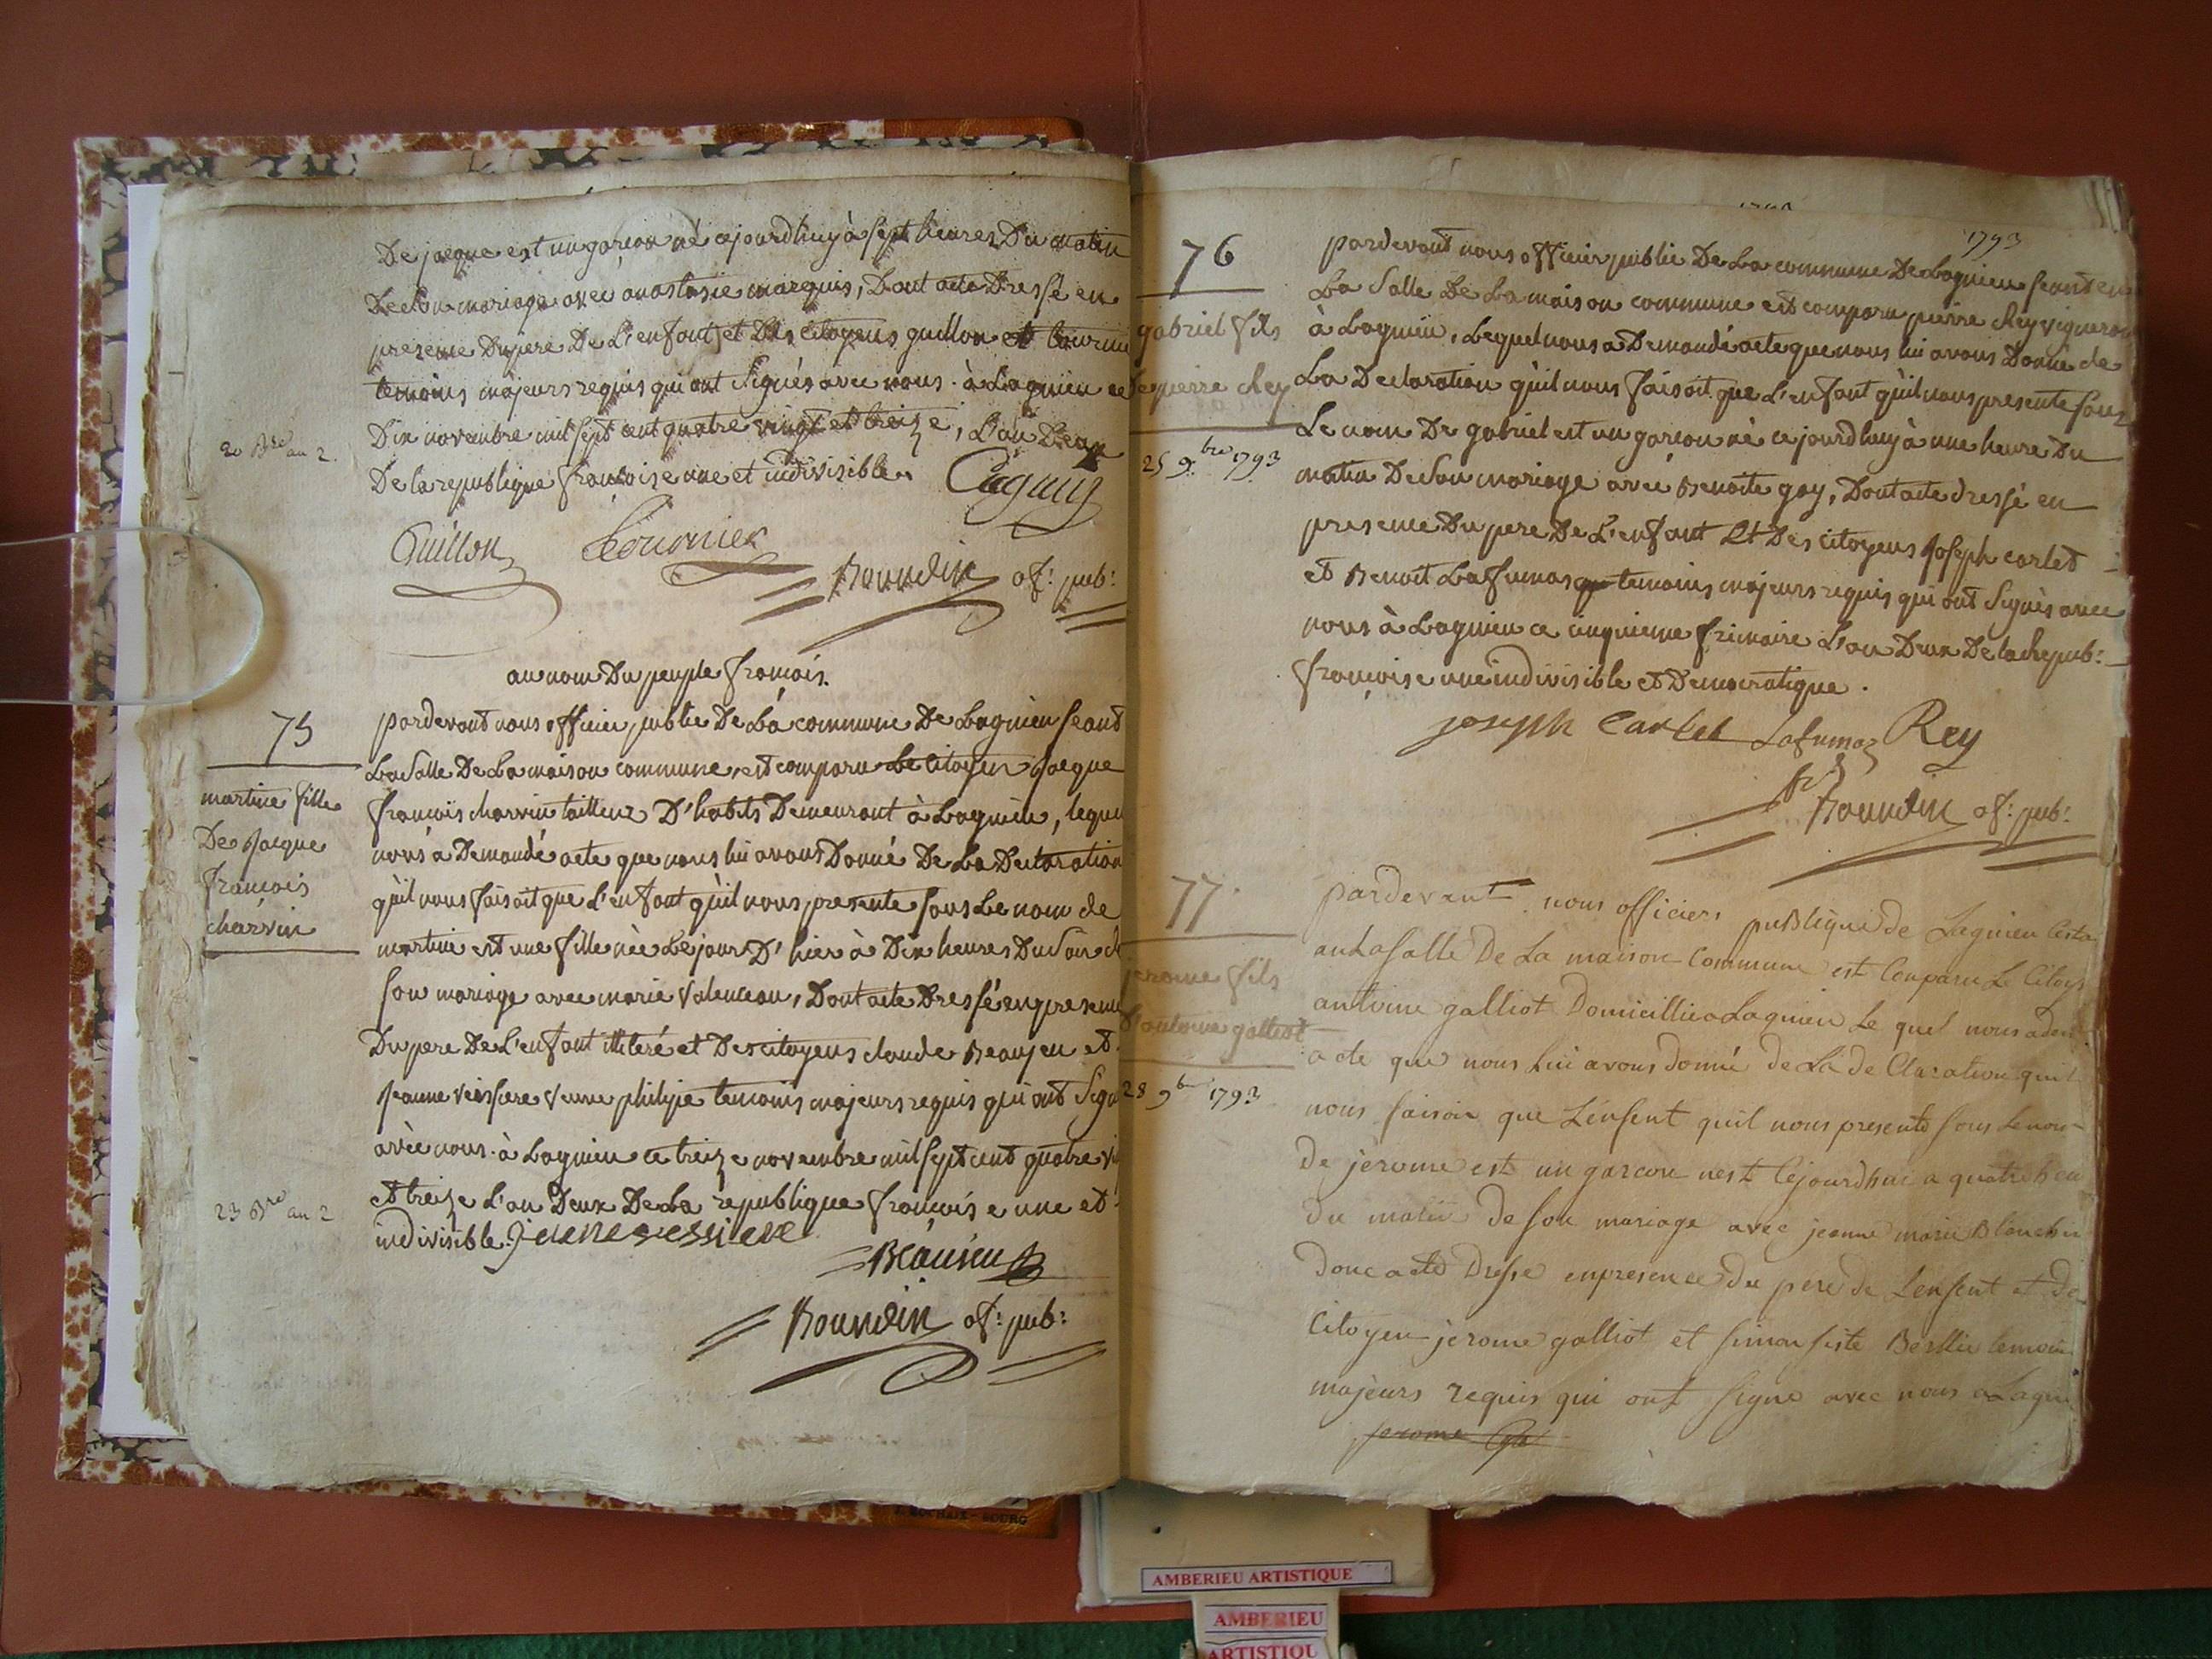 De jacque est un garcon né cejourdhuy à sept heures Du matin
De son mariage avec anastasie marquis, Dont acte Dressé en
presence Du pere De L'enfant, et Des citoyens guillon et
temoins majeurs requis qui ont Signés avec nous. à Lagnieu ce
20 Bre an 2.
Dix novembre mil sept cent quatre vingt et treize, L'an Deux
De la republique francoise une et indivisible.
Guillon
Bourdin of: pub:
au nom Du peuple francois.
75
martine fille
De Jacque
francois
charvin
pardevant nous officier public De La commune De Lagnieu seant
La Salle De La maison commune, est comparu Le Citoyen Jacque
francois charvin tailleur D'habits Demeurant à Lagnieu, lequel
nous a Demandé acte que nous lui avons Donné De La Declaration
qu'il nous faisoit que L'enfant qu'il nous presente sous Le nom de
martine est une fille née Le jour D'hier à Dix heures Du Soir de
son mariage avec marie Valencau, Dont acte Dressé en presence
Du pere De L'enfant illiteré et Des citoyens claude Beaujeu et
Jeanne veuve philipe temoins majeurs requis qui ont Signé
avèc nous. à Lagnieu ce treize novembre mil sept cent quatre
23 Bre an 2
et treize L'an Deux De La republique francoise une et
indivisible.
Bourdin of: pub:
1793
76
gabriel fils
De pierre Rey
25 9.bre 1793
pardevant nous officier public De La commune De Lagnieu seant en
La Salle De La maison commune est comparu pierre Rey vigneron
à Lagnieu, Lequel nous a Demandé acte que nous lui avons Donné de
La Declaration qu'il nous faisoit que L'enfant qu'il nous presente sous
Le nom De gabriel est un garcon né ce jourdhuy à une heure Du
matin De Son mariage avec Benoite gay, Dont acte dressé en
presence Du pere De L'enfant Et Des citoyens Joseph carlet
et Benoit Lafumas temoins majeurs requis qui ont Signés avec
nous à Lagnieu ce cinquieme frimaire L'an Deux De la Repub:
francoise une indivisible et Democratique.
joseph Carlet Lafumaz Rey
Bourdin of: pub:
77.
jerome fils
D'antoine galliot
28 9b 1793
pardevant nous officiers publique de Lagnieu
au La Salle De La maison Commune est Comparu Le Citoy
antoine galliot Domicillie a Lagnieu Le quel nous a dem
acte que nous Lui avons donné de La de Claration quil
nous faisoir que L'enfent quil nous presente sous Le nom
de jerome est un garcon nest Cejourdhui a quatre heu
du matin de son mariage avec jeanne marie Blanchin
donc acte Dresse en presence du pere de L'enfent et de
Citoyen jerome galliot et simon temoin
majeurs requis qui ont signe avec nous a Lagni
jerome
AMBERIEU ARTISTIQUE
AMBERIEU
ARTISTIQU